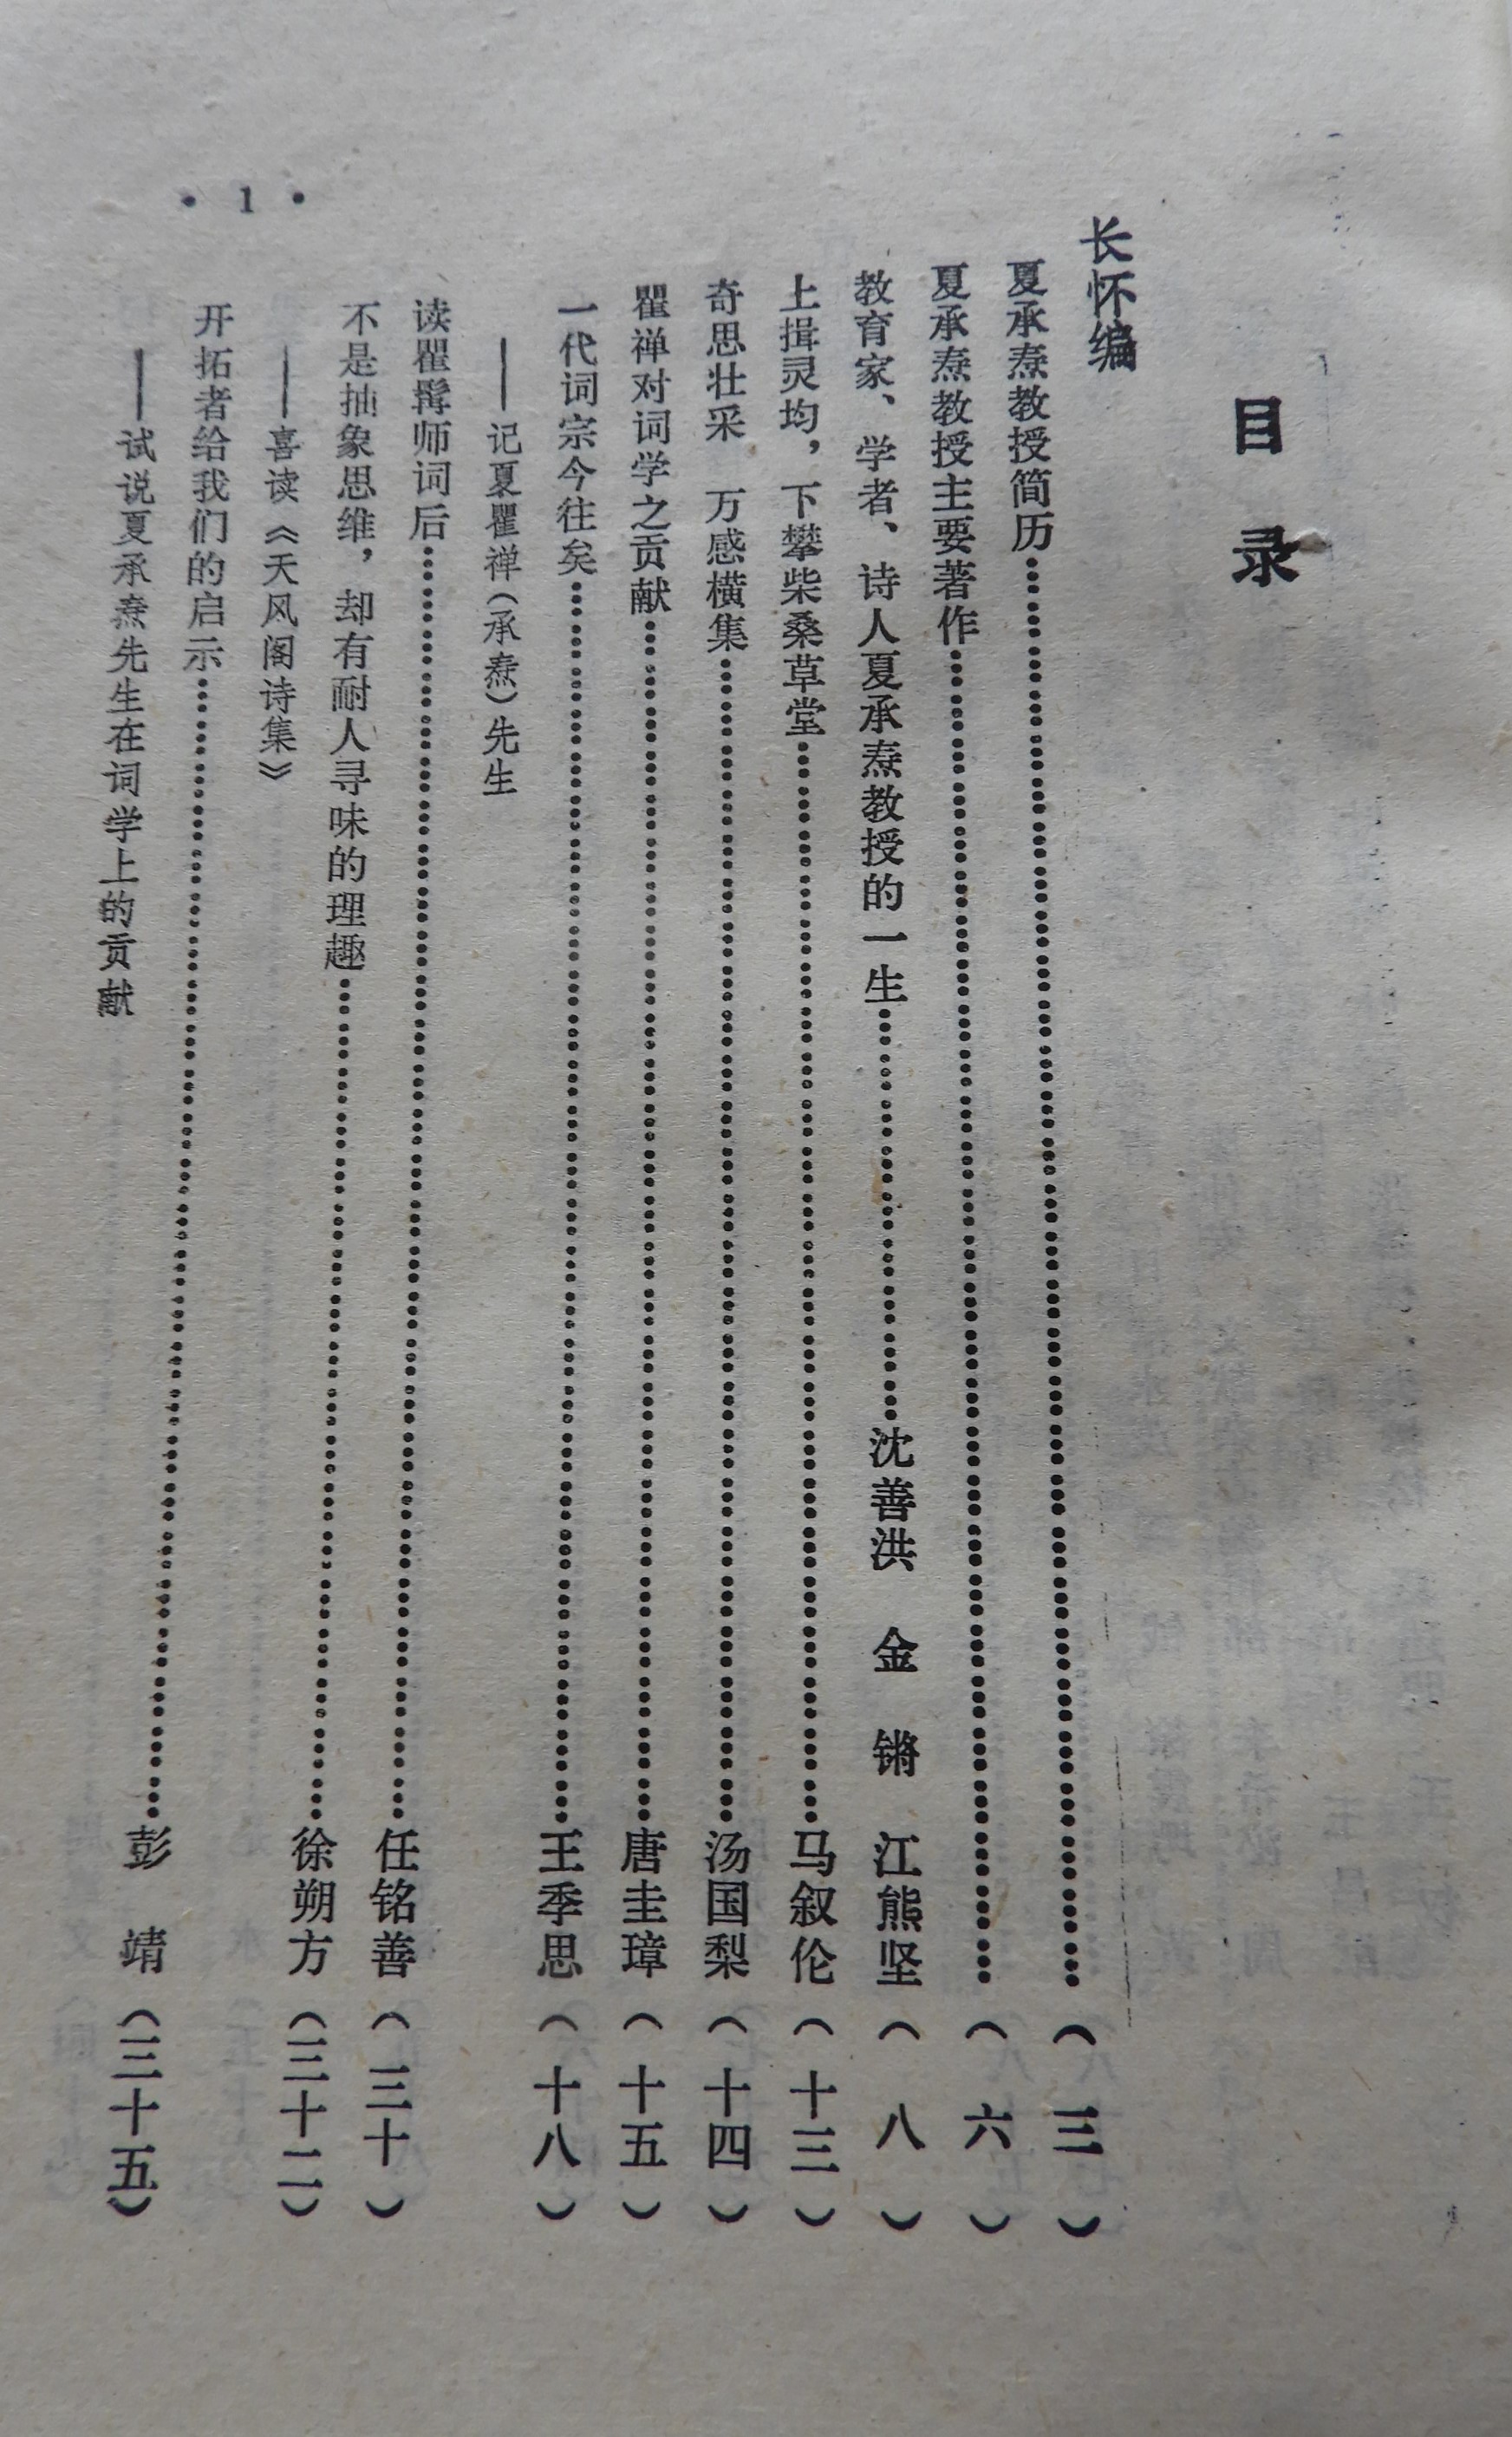 目录
长怀编
夏承焘教授简历……（三）
夏承焘教授主要著作……（六）
教育家、学者、诗人夏承焘教授的一生……沈善洪 金锵 江熊坚（八）
上揖灵均，下攀柴桑草堂……马叙伦（十三）
奇思壮采 万感横集……汤国梨（十四）
瞿禅对词学之贡献……唐圭璋（十五）
一代词宗今往矣……王季思（十八）
——记夏瞿禅（承焘）先生
读瞿髯师词后……任铭善（三十）
不是抽象思维，却有耐人寻味的理趣……徐朔方（三十二）
——喜读《天风阁诗集》
开拓者给我们的启示……彭靖（三十五）
——试说夏承焘先生在词学上的贡献
• 1 •